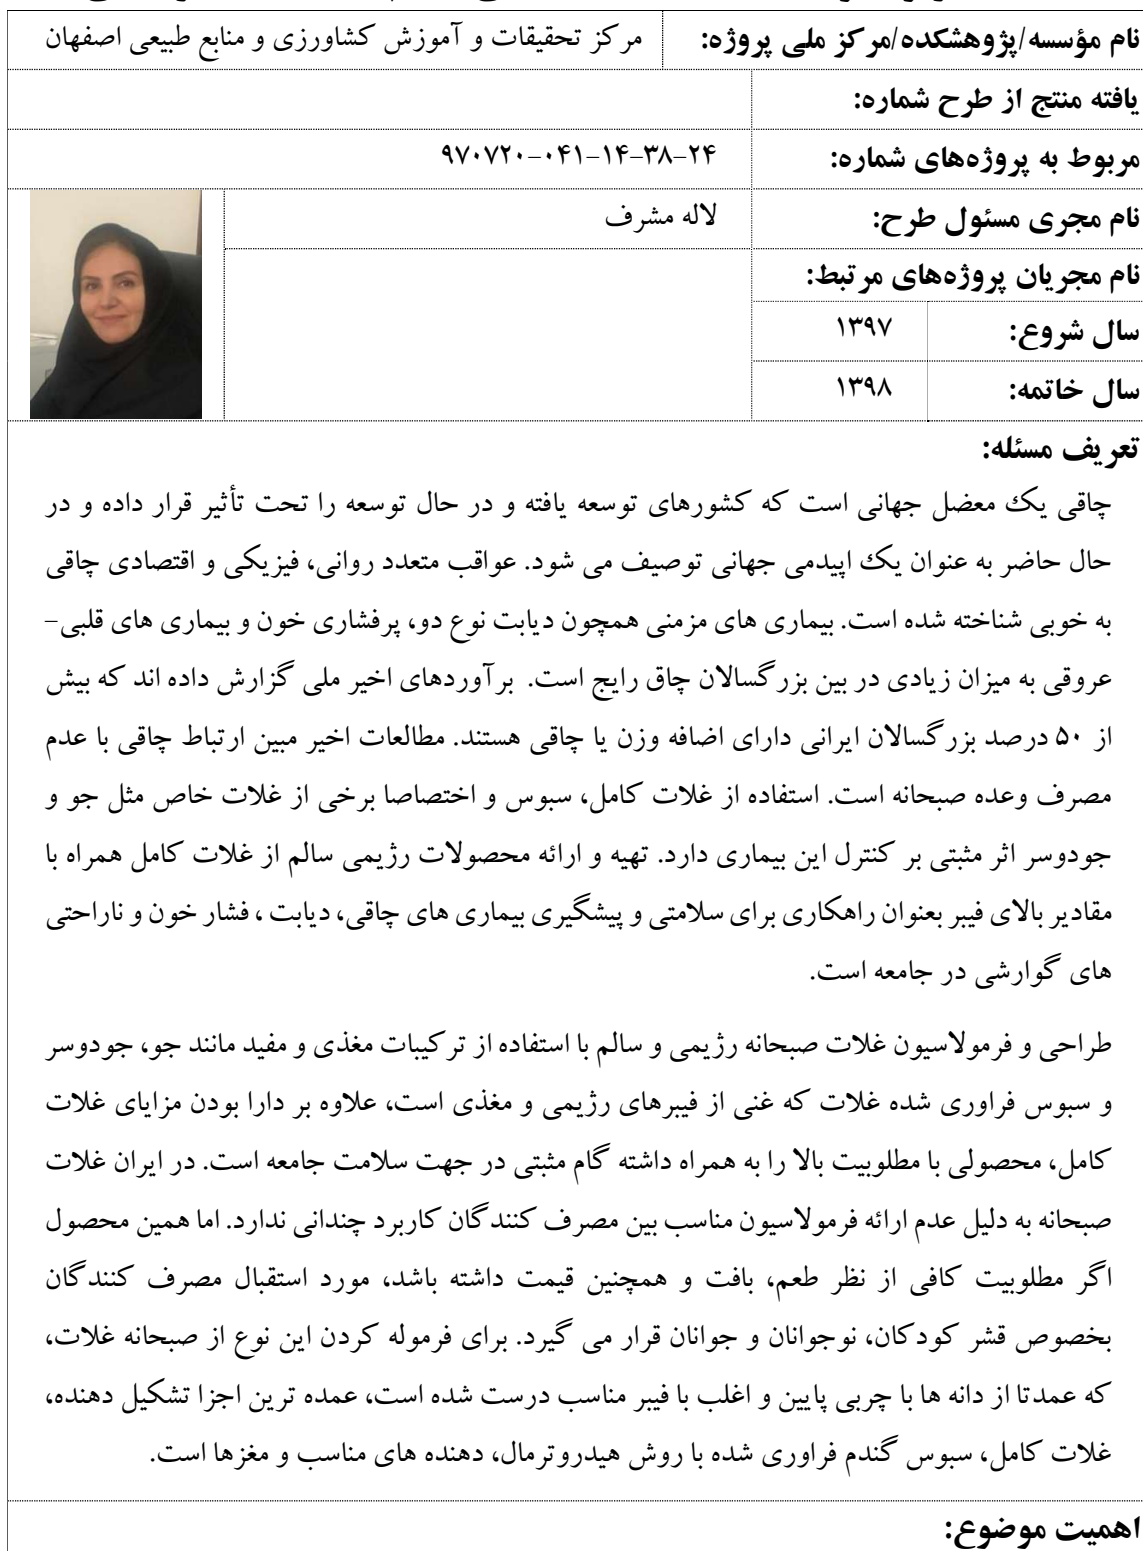 نام مؤسسه/پژوهشکده/مرکز ملی پروژه: مرکز تحقیقات و آموزش کشاورزی و منابع طبیعی اصفهان
یافته منتج از طرح شماره:
مربوط به پروژه‌های شماره: ۲۴-۳۸-۱۴-۰۴۱-۹۷۰۷۲۰
نام مجری مسئول طرح: لاله مشرف
نام مجریان پروژه‌های مرتبط:
سال شروع: ۱۳۹۷
سال خاتمه: ۱۳۹۸
تعریف مسئله:
چاقی یک معضل جهانی است که کشورهای توسعه یافته و در حال توسعه را تحت تأثیر قرار داده و در
حال حاضر به عنوان یک اپیدمی جهانی توصیف می شود. عواقب متعدد روانی، فیزیکی و اقتصادی چاقی
به خوبی شناخته شده است. بیماری های مزمنی همچون دیابت نوع دو، پرفشاری خون و بیماری های قلبی-
عروقی به میزان زیادی در بین بزرگسالان چاق رایج است. برآوردهای اخیر ملی گزارش داده اند که بیش
از ۵۰ درصد بزرگسالان ایرانی دارای اضافه وزن یا چاقی هستند. مطالعات اخیر مبین ارتباط چاقی با عدم
مصرف وعده صبحانه است. استفاده از غلات کامل، سبوس و اختصاصا برخی از غلات خاص مثل جو و
جودوسر اثر مثبتی بر کنترل این بیماری دارد. تهیه و ارائه محصولات رژیمی سالم از غلات کامل همراه با
مقادیر بالای فیبر بعنوان راهکاری برای سلامتی و پیشگیری بیماری های چاقی، دیابت ، فشار خون و ناراحتی
های گوارشی در جامعه است.
طراحی و فرمولاسیون غلات صبحانه رژیمی و سالم با استفاده از ترکیبات مغذی و مفید مانند جو، جودوسر
و سبوس فراوری شده غلات که غنی از فیبرهای رژیمی و مغذی است، علاوه بر دارا بودن مزایای غلات
کامل، محصولی با مطلوبیت بالا را به همراه داشته گام مثبتی در جهت سلامت جامعه است. در ایران غلات
صبحانه به دلیل عدم ارائه فرمولاسیون مناسب بین مصرف کنندگان کاربرد چندانی ندارد. اما همین محصول
اگر مطلوبیت کافی از نظر طعم، بافت و همچنین قیمت داشته باشد، مورد استقبال مصرف کنندگان
بخصوص قشر کودکان، نوجوانان و جوانان قرار می گیرد. برای فرموله کردن این نوع از صبحانه غلات،
که عمدتا از دانه ها با چربی پایین و اغلب با فیبر مناسب درست شده است، عمده ترین اجزا تشکیل دهنده،
غلات کامل، سبوس گندم فراوری شده با روش هیدروترمال، دهنده های مناسب و مغزها است.
اهمیت موضوع: